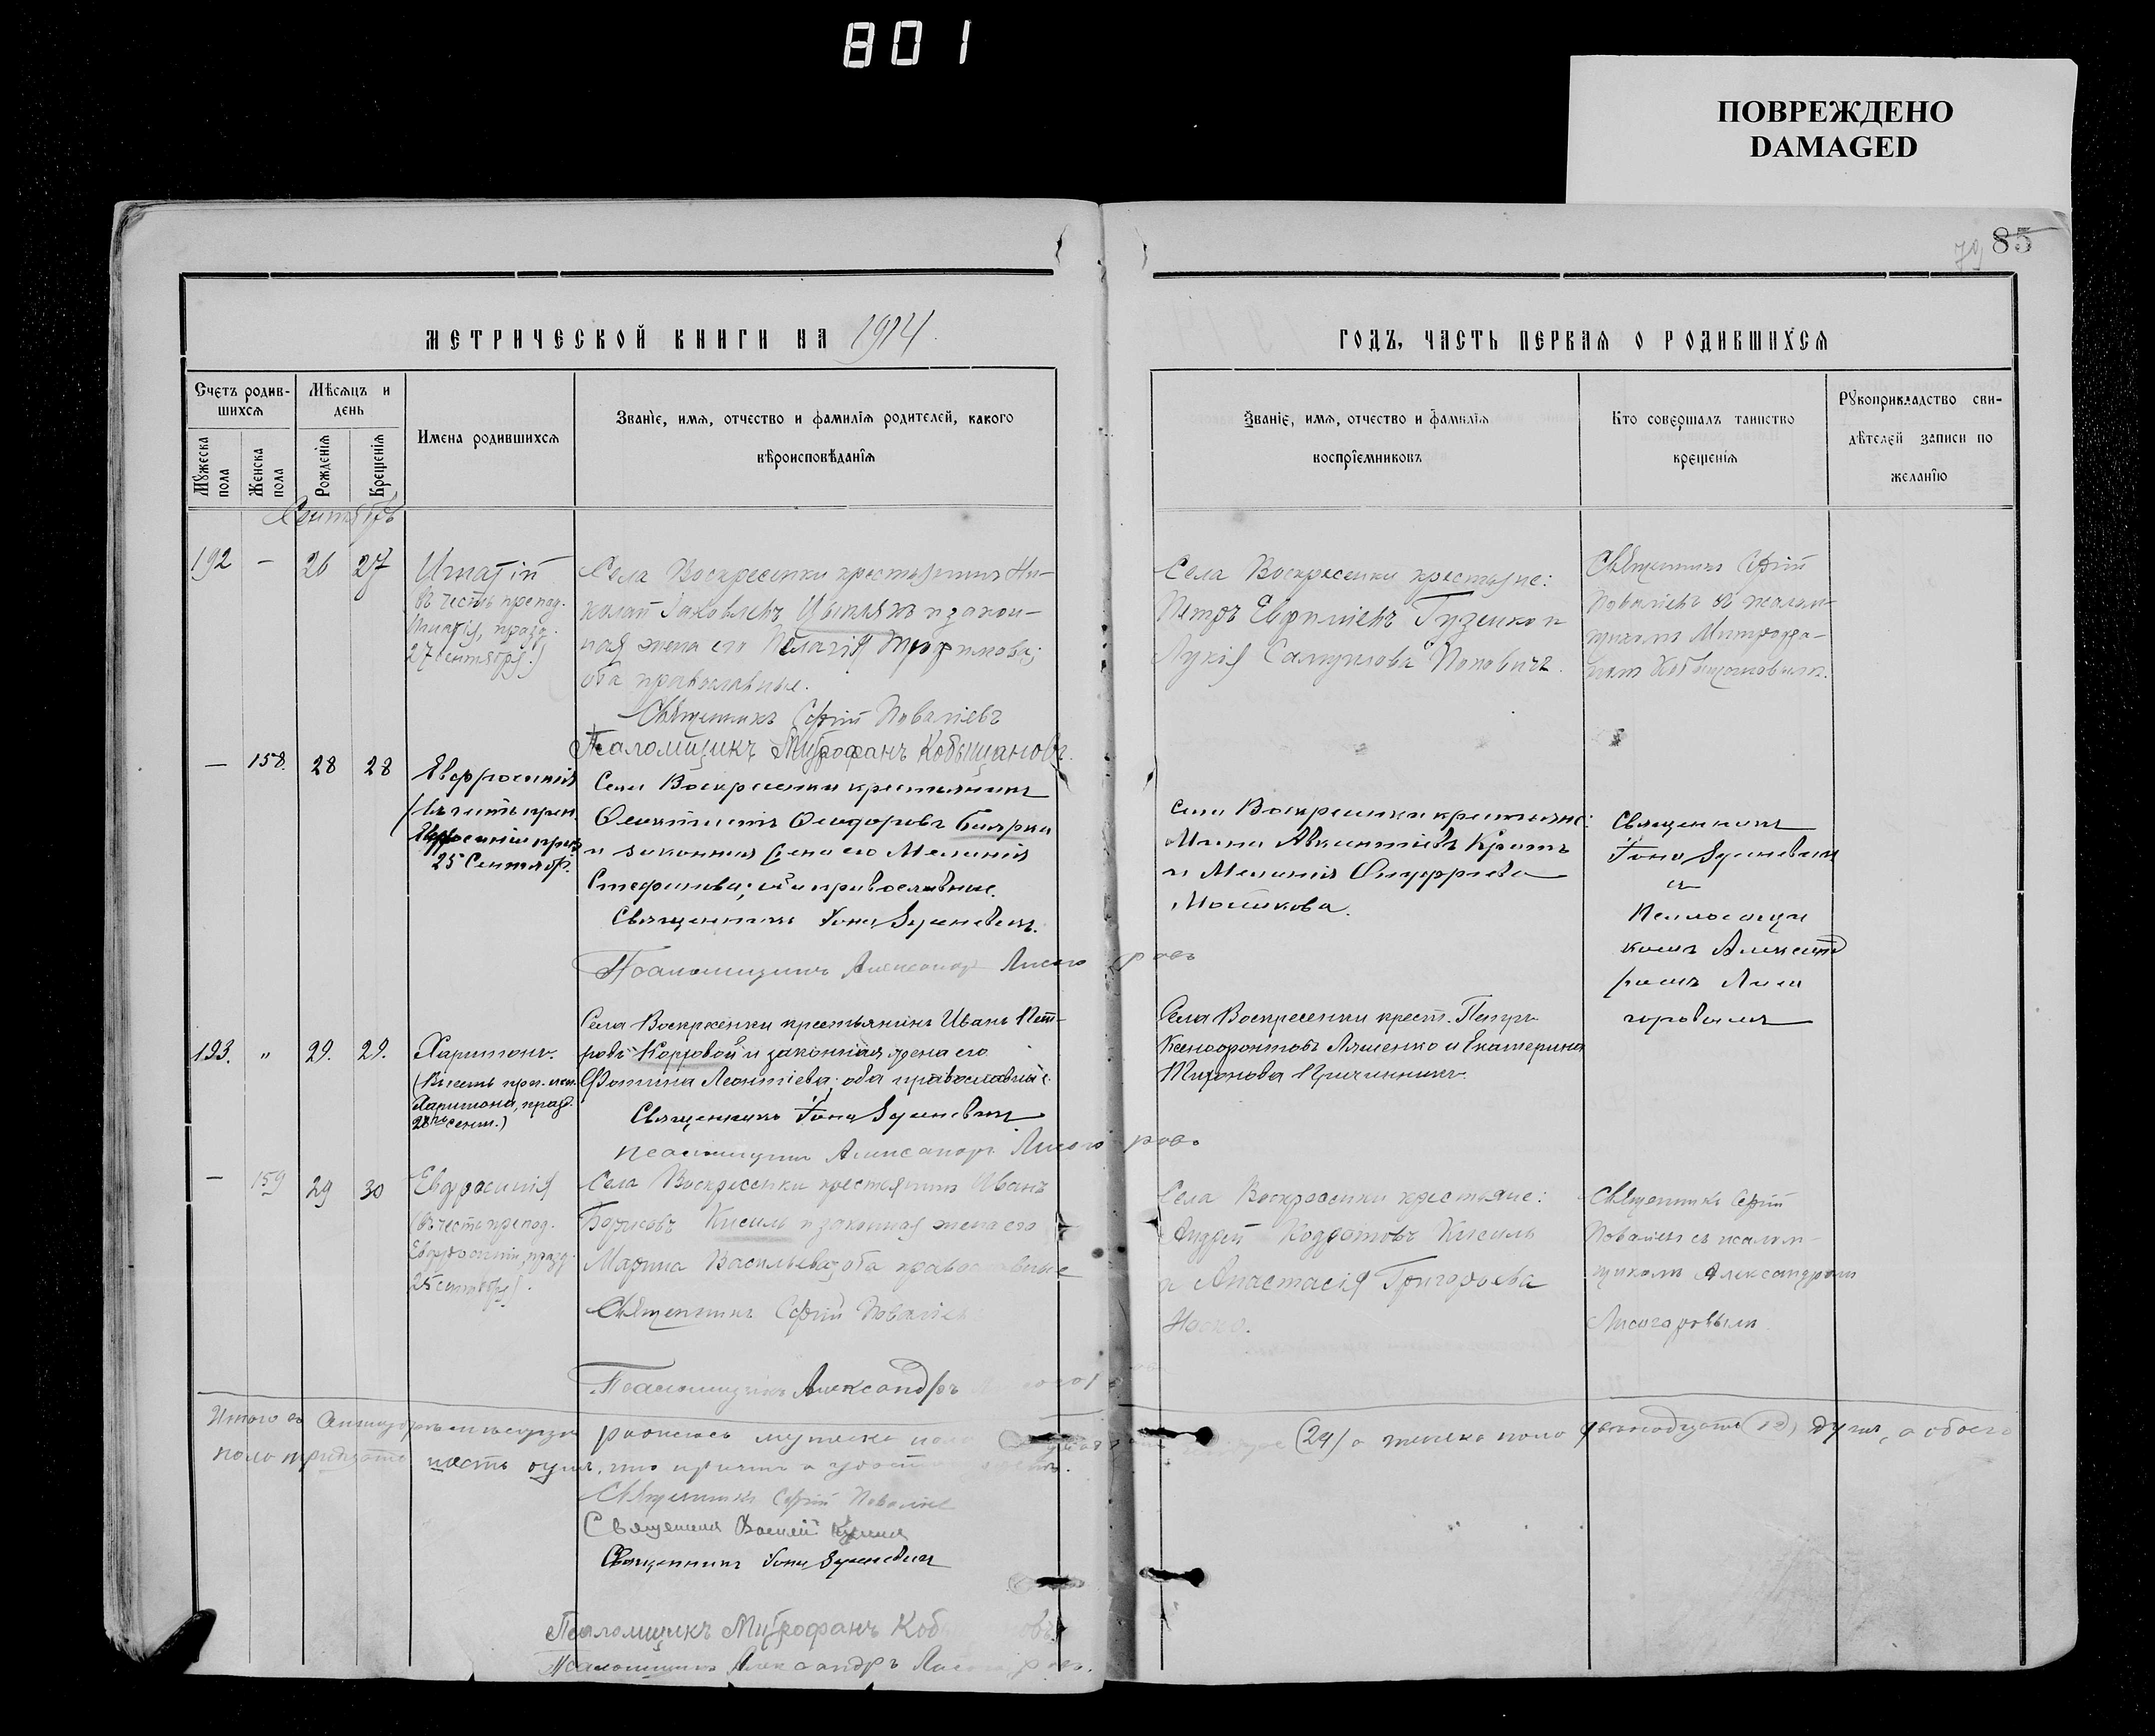 801
ПОВРЕЖДЕНО
DAMAGED
79 85
МЕТРИЧЕСКОЙ КНИГИ НА 1914
ГОДЪ, ЧАСТЬ ПЕРВАЯ О РОДИВШИХСЯ
Счетъ родив-
шихся
Мѣсяцъ и
день
Мужеска
пола
Женска
пола
Рожденія
Крещенія
Имена родившихся
Званіе, имя, отчество и фамилія родителей, какого
вѣроисповѣданія
Званіе, имя, отчество и фамилія
воспріемниковъ
Кто совершалъ таинство
крещенія
Рукоприкладство сви-
дѣтелей записи по
желанію
Сентябрь
192 — 26 27
Игнатій
(въ честь препод.
Игнатія, празд.
27 сентября.)
Села Воскресенки крестьянинъ Ни-
колай Іаковлевъ и закон-
ная жена его Пелагія Трофимова;
оба православные.
Священникъ Сергій Поваліевъ
Псаломщикъ Митрофанъ Кобыщановъ.
Села Воскресенки крестьяне:
Петръ Евфиміевъ Гузенко и
Лукія Самуилова Поповичъ.
Священникъ Сергій
Поваліевъ съ псалом-
щикомъ Митрофа-
номъ Кобыщановымъ.
— 158. 28 28
Евфросинія
(въ честь преп.
Евфросиніи празд.
25 Сентябр.
Села Воскресенки крестьянинъ
Феоктистъ Феодоровъ Боярко
и законная жена его Меланія
Стефанова; оба православные.
Священникъ Іона
Псаломщикъ Александръ Лисогоровъ
Села Воскресенки крестьяне:
Авксентіевъ Кротъ
и Меланія Онуфріева
Священникъ
Іона
съ
Псаломщи
комъ Александ
ромъ Лисо
горовымъ
193. „ 29. 29.
Харитонъ.
(Въ честь преп. исп.
Харитона, празд.
28го сент.)
Села Воскресенки крестьянинъ Иванъ Пет-
ровъ Коржовой и законная жена его
Фотина Леонтіева; оба православные.
Священникъ Іона
псаломщикъ Александръ Лисогоровъ
Села Воскресенки крест. Петръ
Ксенофонтовъ Ляшенко и Екатерина
Тихонова
— 159 29 30
Евфросинія
(въ честь препод.
Евфросиніи, празд.
25 сентября).
Села Воскресенки крестьянинъ Иванъ
Борисовъ Кисиль и законная жена его
Марина Васильева; оба православные
Священникъ Сергій Поваліевъ
Псаломщикъ Александръ
Села Воскресенки крестьяне:
Андрей Кодратовъ Кисиль
и Анастасія Григорьева
Носко.
Священникъ Сергій
Поваліевъ съ псалом-
щикомъ Александромъ
Лисогоровымъ.
Итого въ Сентябрѣ мѣсяцѣ родилось мужеска пола (24) а женска пола двѣнадцать (12) душъ, а обоего
пола тридцать шесть душъ,
Священникъ Сергій Поваліевъ
Священникъ Василій
Священникъ Іона
Псаломщикъ Митрофанъ Кобыщановъ
Псаломщикъ Александръ Лисогоровъ.